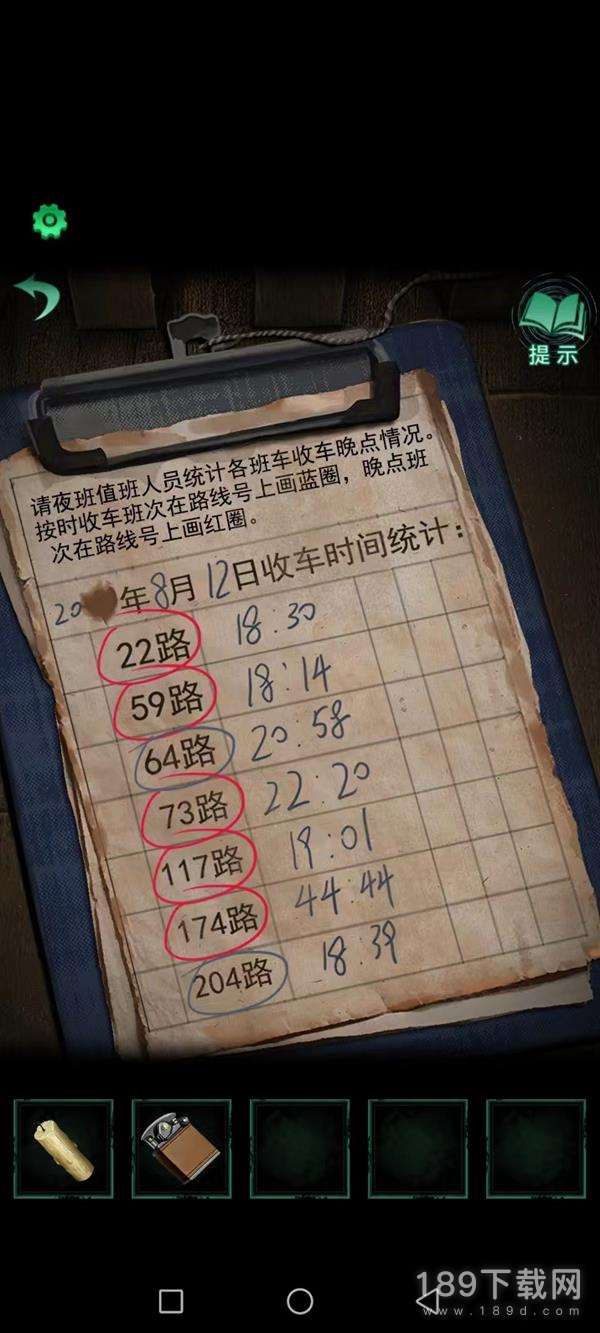 提示
请夜班值班人员统计各班车收车晚点情况。
按时收车班次在路线号上画蓝圈，晚点班
次在路线号上画红圈。
20 年8月12日收车时间统计：
22路 18:30
59路 18:14
64路 20:58
73路 22:20
117路 19:01
174路 44:44
204路 18:39
189下载网
www.189d.com